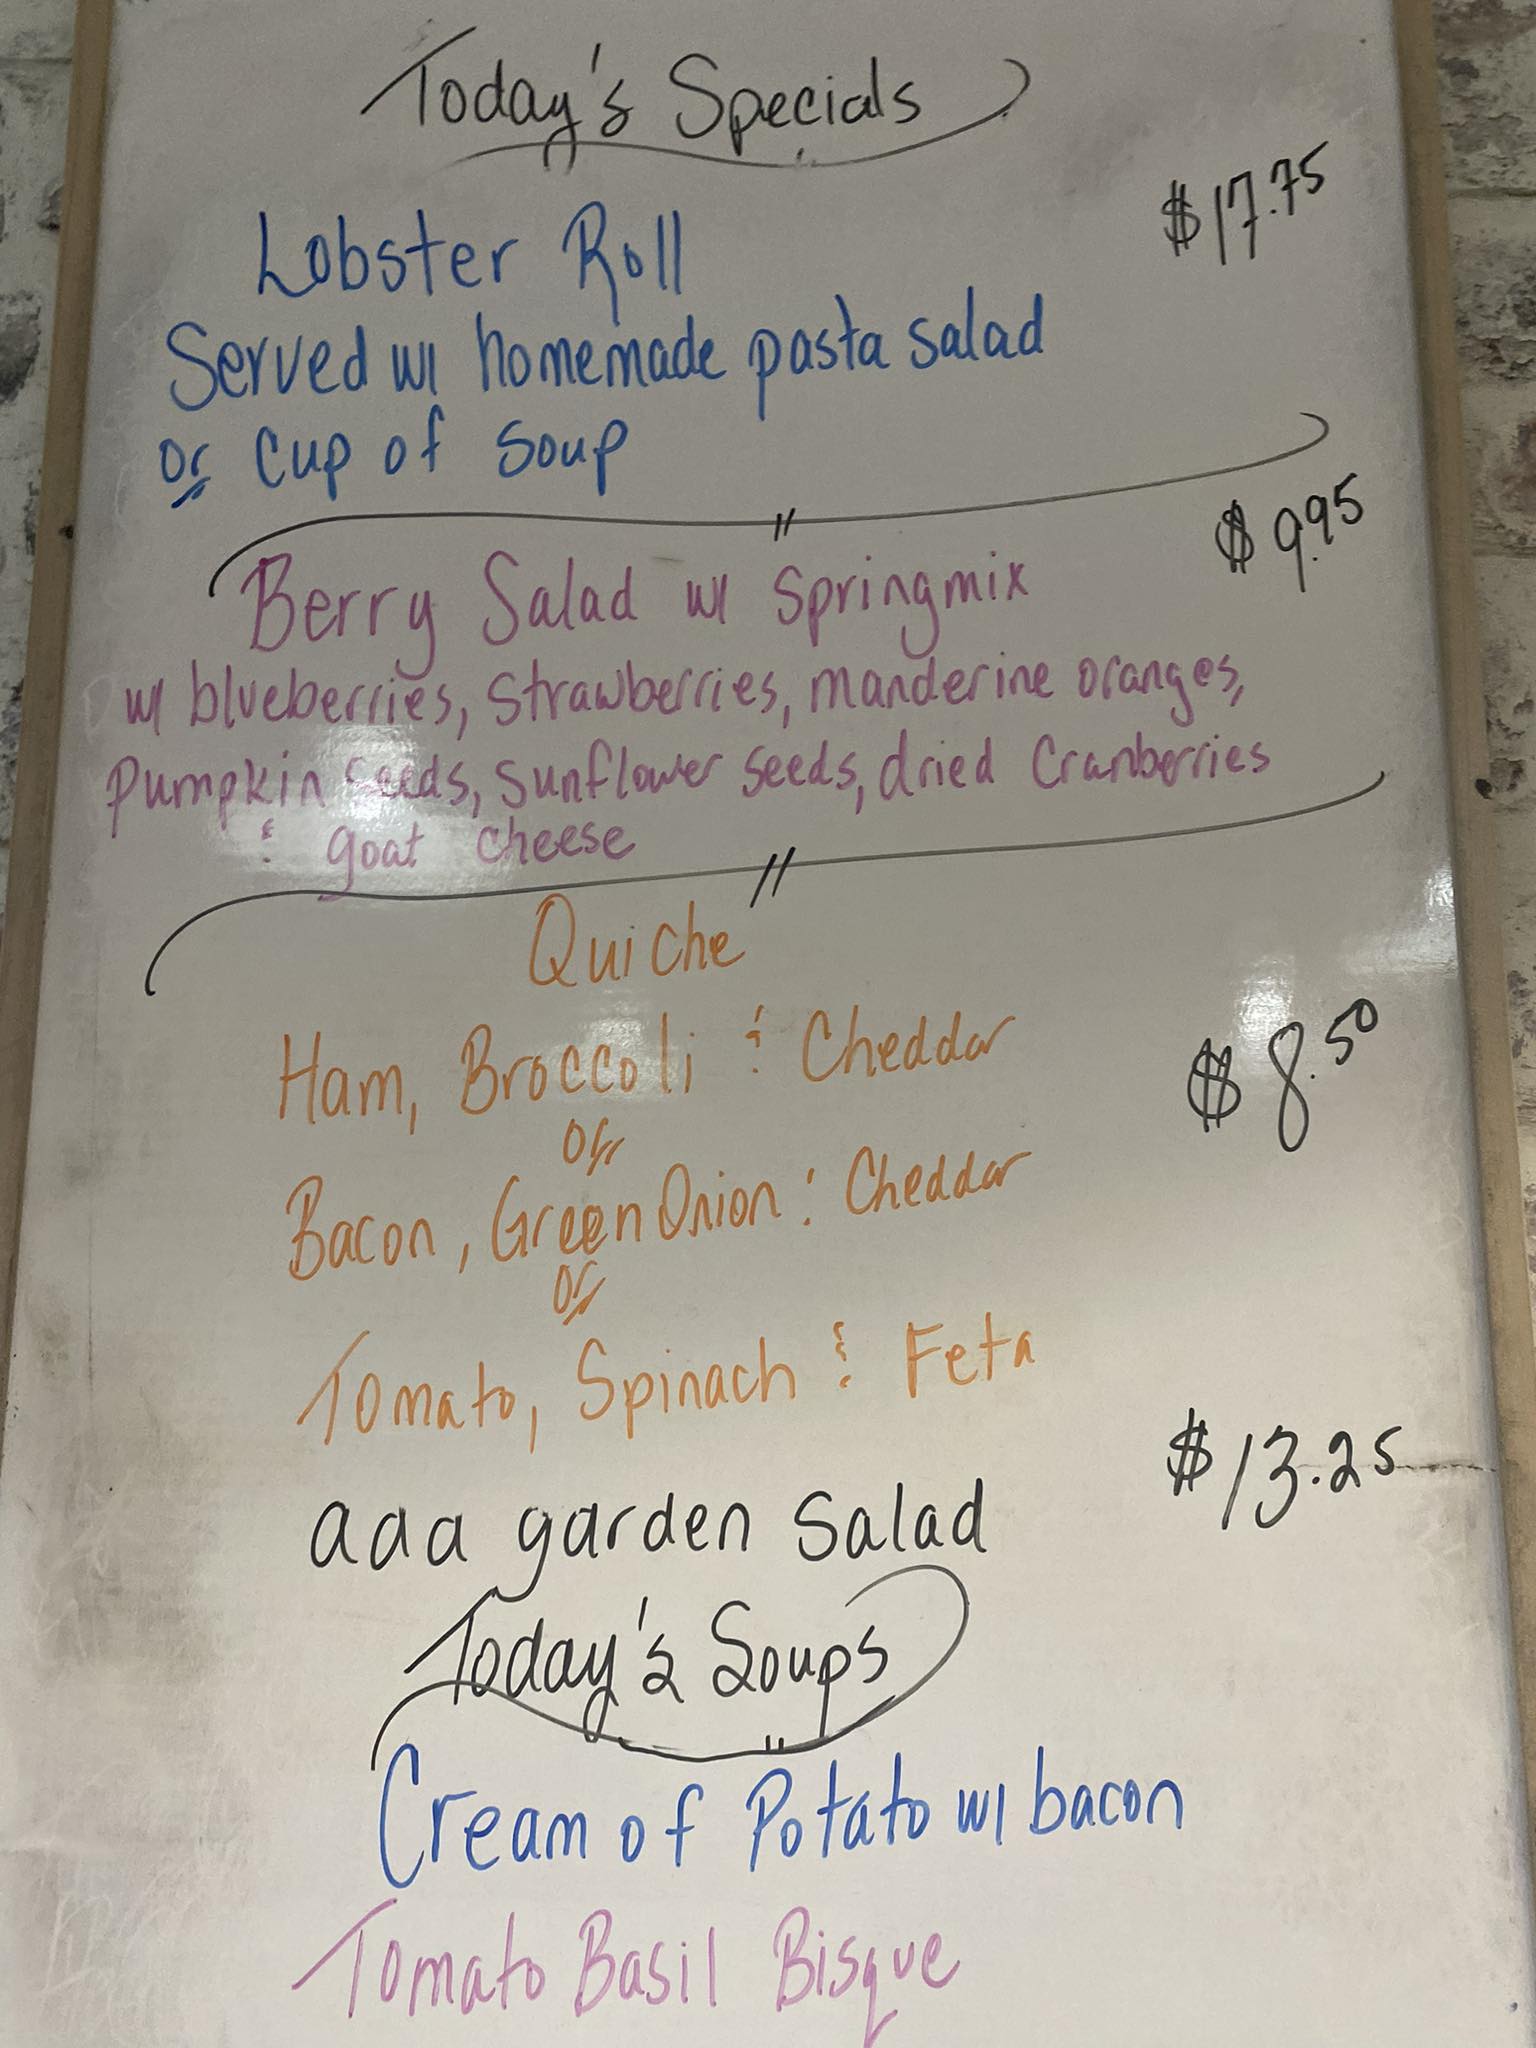 Today's Specials
$17.75
Lobster Roll
Served w/ homemade pasta salad
or cup of soup
$9.95
Berry Salad w/ Springmix
w/ blueberries, strawberries, manderine oranges,
Pumpkin seeds, sunflower seeds, dried Cranberries
& goat cheese
Quiche
Ham, Broccoli & Cheddar
$8.50
or
Bacon, Green Onion & Cheddar
or
Tomato, Spinach & Feta
$13.25
add garden Salad
Today's Soups
Cream of Potato w/ bacon
Tomato Basil Bisque